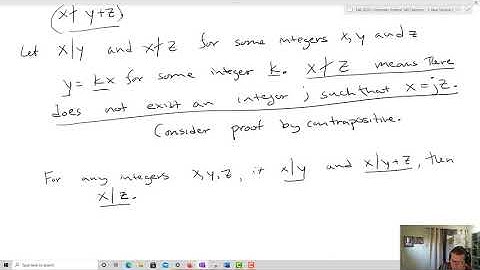 (x∤ y+z)
Let x|y and x∤z for some integers x, y and z
y = kx for some integer k. x∤z means there
does not exist an integer j such that x = jz.
Consider proof by contrapositive.
For any integers x, y, z, if x|y and x|y+z, then
x|z.
Type here to search